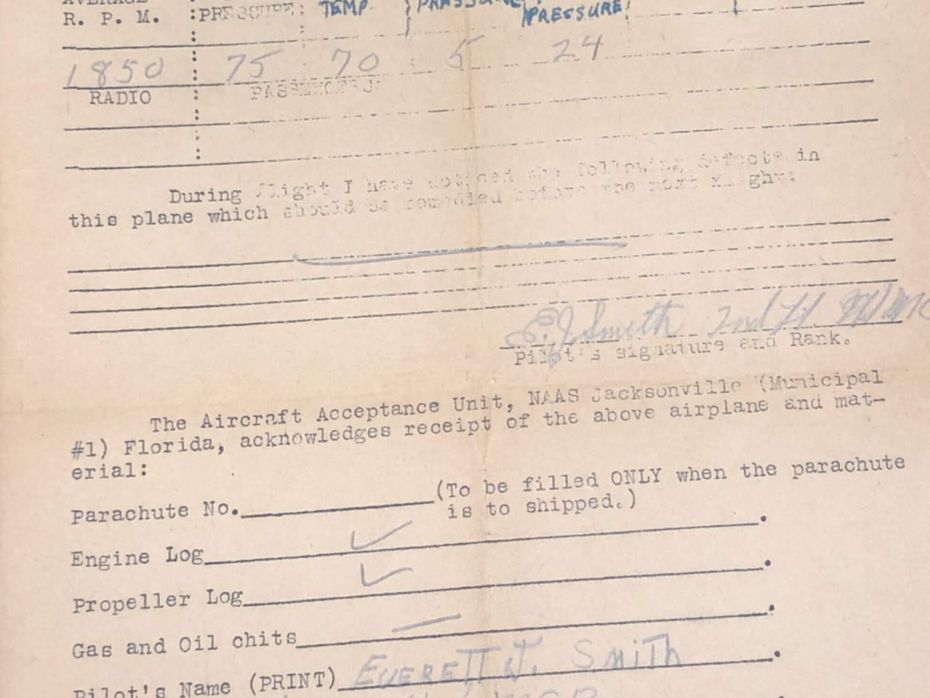 AVERAGE
R. P. M. :PRESSURE: TEMP. PRESSURE PRESSURE:
1850 75 70 5 24
RADIO PASSENGERS
During flight I have noticed the following defects in
this plane which should be remedied before the next flight:
E.J. Smith 2nd Lt.
Pilot's signature and Rank.
The Aircraft Acceptance Unit, NAAS Jacksonville (Municipal
#1) Florida, acknowledges receipt of the above airplane and mat-
erial:
Parachute No. (To be filled ONLY when the parachute
is to shipped.)
Engine Log ✓.
Propeller Log ✓.
Gas and Oil chits —.
Pilot's Name (PRINT) EVERETT J. SMITH.